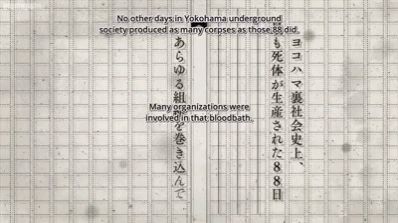 No other days in Yokohama underground
society produced as many corpses as those 88 did.
Many organizations were
involved in that bloodbath.
ヨコハマ裏社会史上、
も死体が生産された88日
あらゆる組織を巻き込んで